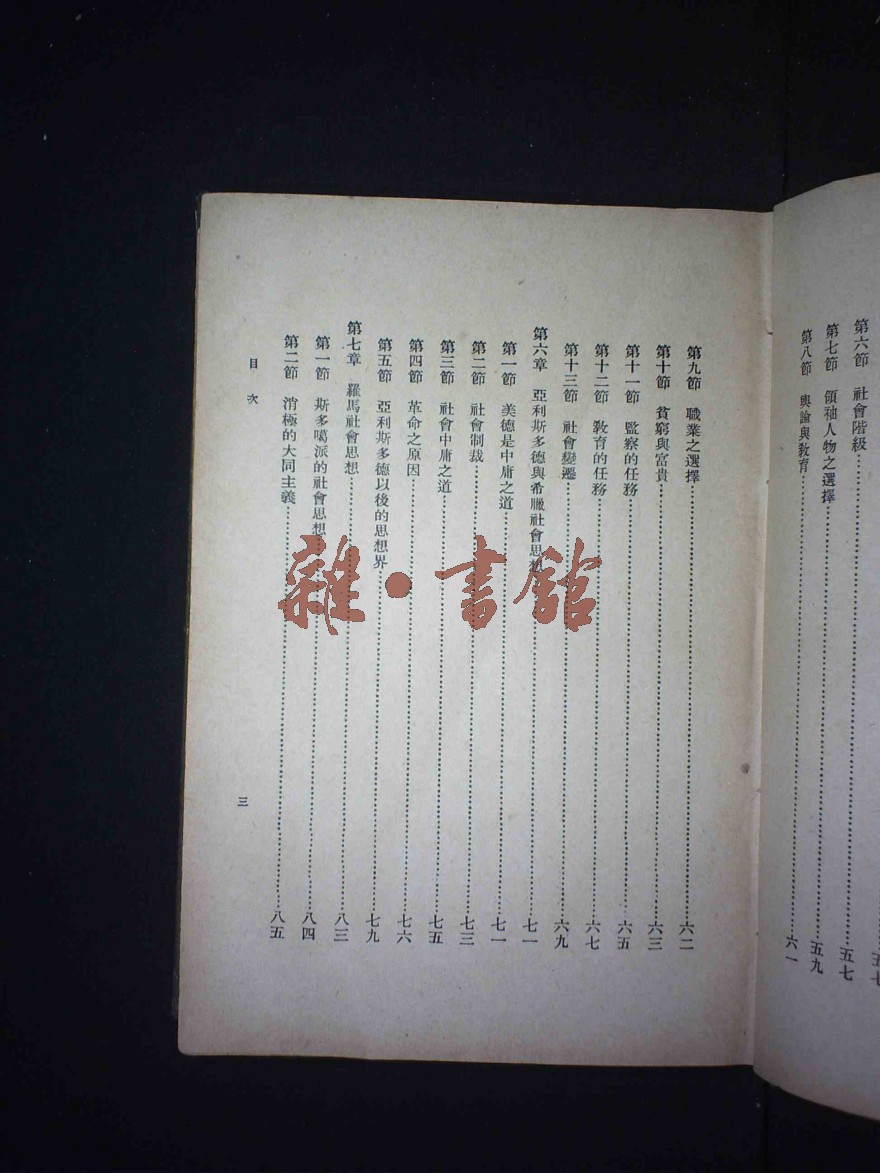 第六節 社會階級……五七
第七節 領袖人物之選擇……五九
第八節 輿論與敎育……六一
第九節 職業之選擇……六二
第十節 貧窮與富貴……六三
第十一節 監察的任務……六五
第十二節 敎育的任務……六七
第十三節 社會變遷……六九
第六章 亞利斯多德與希臘社會思想……七一
第一節 美德是中庸之道……七一
第二節 社會制裁……七三
第三節 社會中庸之道……七五
第四節 革命之原因……七六
第五節 亞利斯多德以後的思想界……七九
第七章 羅馬社會思想……八三
第一節 斯多噶派的社會思想……八四
第二節 消極的大同主義……八五
目次
三
雜·書館